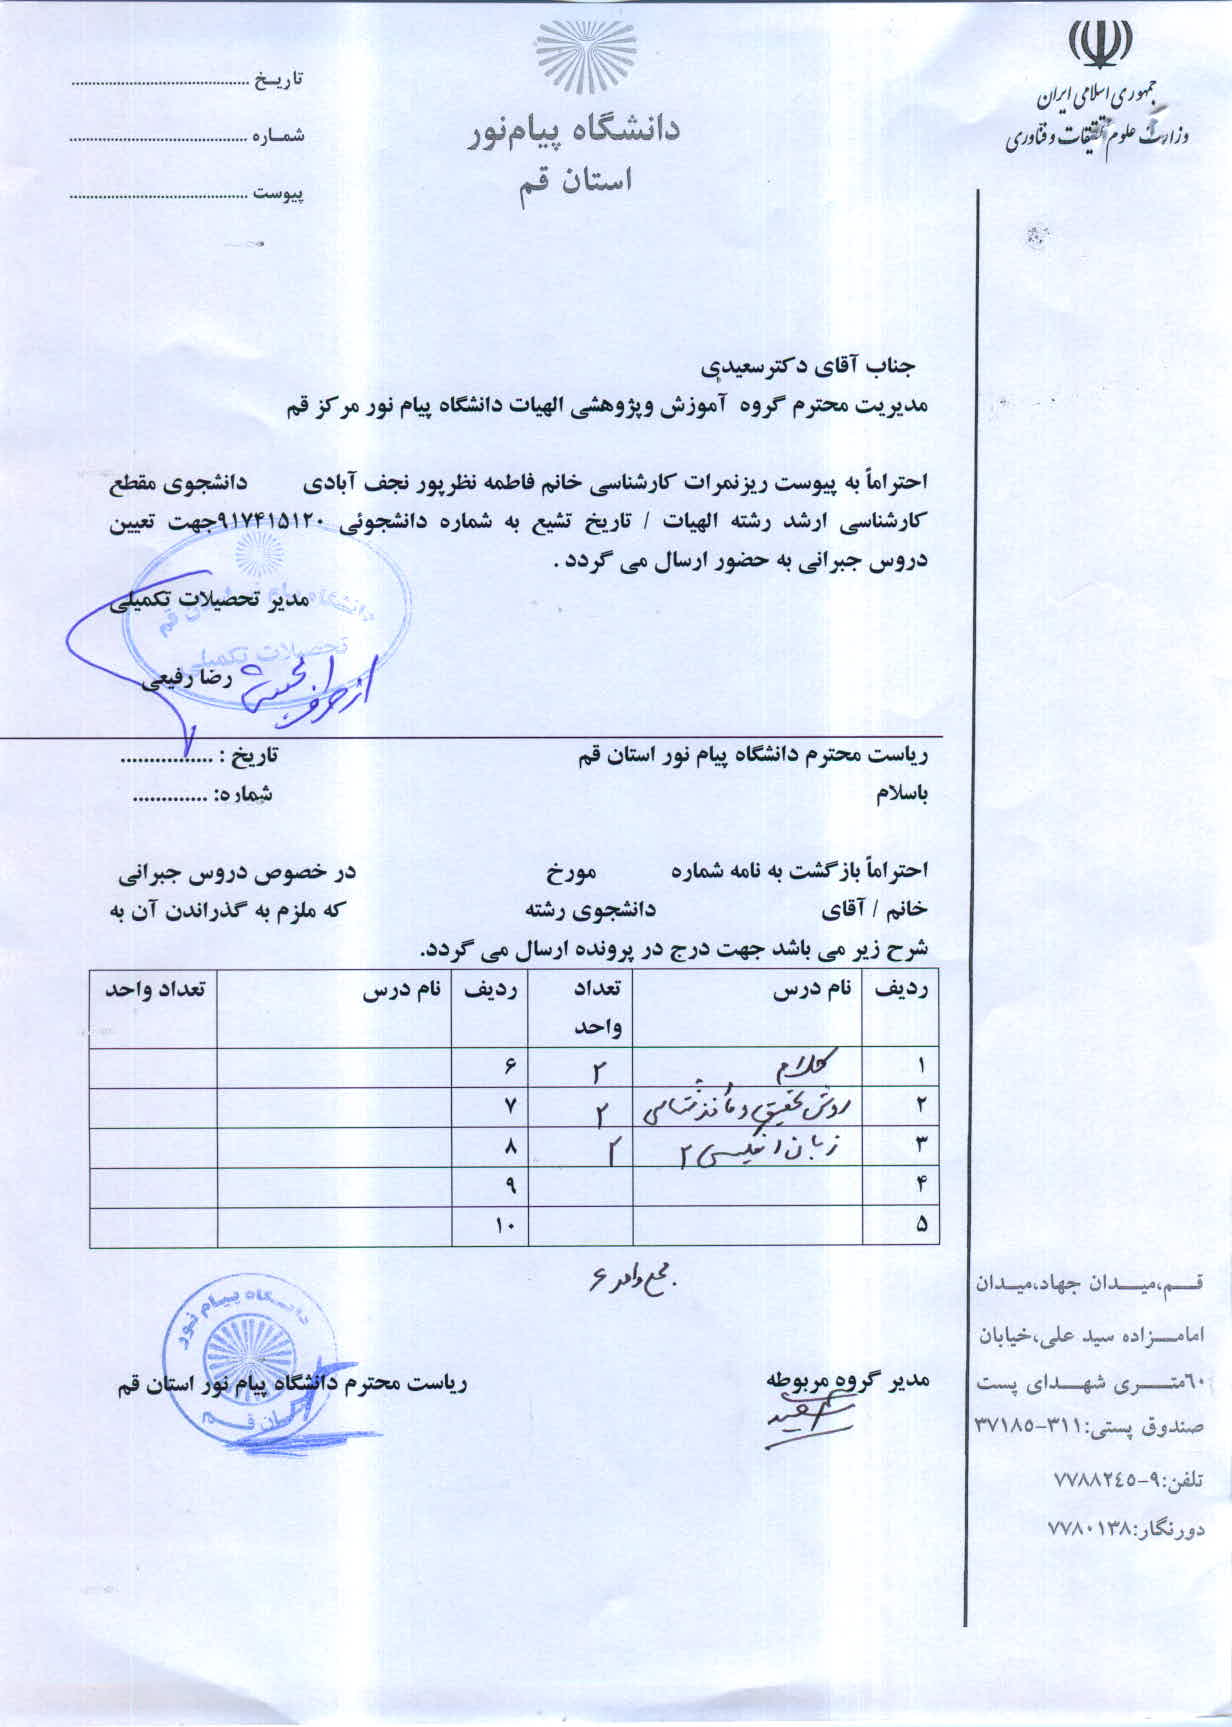 جمهوری اسلامی ایران
وزارت علوم تحقیقات و فناوری
دانشگاه پیام‌نور
استان قم
تاریـخ ........................................
شمـاره ........................................
پیوست ........................................
جناب آقای دکترسعیدی
مدیریت محترم گروه آموزش وپژوهشی الهیات دانشگاه پیام نور مرکز قم
احتراماً به پیوست ریزنمرات کارشناسی خانم فاطمه نظرپور نجف آبادی دانشجوی مقطع
کارشناسی ارشد رشته الهیات / تاریخ تشیع به شماره دانشجوئی ۹۱۷۴۱۵۱۲۰جهت تعیین
دروس جبرانی به حضور ارسال می گردد .
مدیر تحصیلات تکمیلی
دانشگاه پیام نور استان قم
تحصیلات تکمیلی
رضا رفیعی
از طرف
ریاست محترم دانشگاه پیام نور استان قم تاریخ : ................
باسلام شماره: .............
احتراماً بازگشت به نامه شماره مورخ در خصوص دروس جبرانی
خانم / آقای دانشجوی رشته که ملزم به گذراندن آن به
شرح زیر می باشد جهت درج در پرونده ارسال می گردد.
ردیف نام درس تعداد واحد ردیف نام درس تعداد واحد
۱ کلام ۲ ۶
۲ روش تحقیق و مأخذشناسی ۲ ۷
۳ زبان انگلیسی ۲ ۲ ۸
۴ ۹
۵ ۱۰
جمع واحد ۶
مدیر گروه مربوطه ریاست محترم دانشگاه پیام نور استان قم
دانشگاه پیام نور
استان قم
قـــم،میــدان جهاد،میـدان
امامــزاده سید علی،خیابان
۶۰متــــری شهــدای پست
صندوق پستی:۳۱۱-۳۷۱۸۵
تلفن:۹-۷۷۸۸۲۴۵
دورنگار:۷۷۸۰۱۳۸